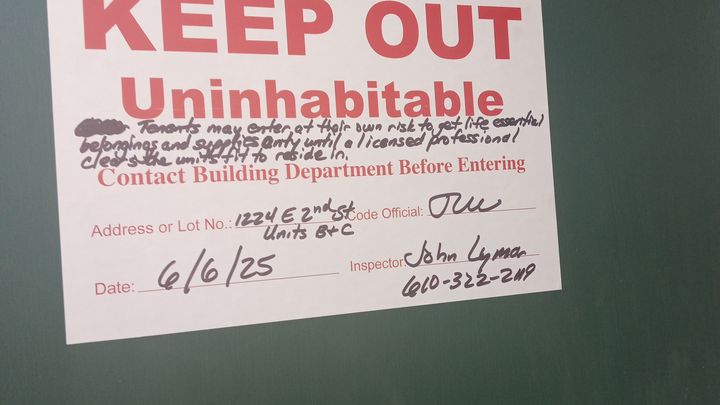 KEEP OUT
Uninhabitable
Tenants may enter at their own risk to get life essential
belongings and supplies only until a licensed professional
clears the units fit to reside in.
Contact Building Department Before Entering
Address or Lot No.: 1224 E 2nd St Code Official:
Units B+C
Date: 6/6/25 Inspector: John Lyman
610-322-2119